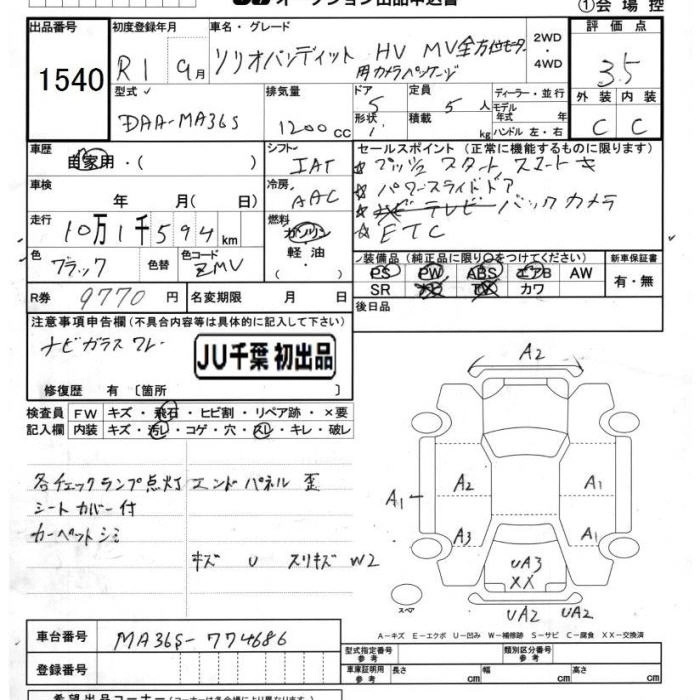 ①会場控
出品番号 初度登録年月 車名・グレード 評価点
1540 R1 9月 ソリオバンディット HV MV 全方位モニター用カメラパッケージ 2WD・4WD 3.5
型式 排気量 ドア 定員 ディーラー・並行 外装 内装
DAA-MA36S 1200cc 5 5人 モデル年式 年 C C
形状 積載 kg ハンドル 左・右
車歴 シフト セールスポイント(正常に機能するものに限ります)
自家用・( ) IAT プッシュスタート スマートキー
車検 冷房 パワースライドドア
年 月( 日) AAC テレビ バックカメラ
走行 燃料 ETC
10万1千594km ガソリン 軽油・
色 色替 色コード 装備品(純正品に限り○をつけてください) 新車保証書
ブラック ZMV PS PW ABS エアB AW 有・無
SR ナビ TV カワ
R券 9770円 名変期限 月 日 後日品
注意事項申告欄(不具合内容等は具体的に記入して下さい)
ナビガラスワレ
JU千葉 初出品
修復歴 有 〔箇所 〕
検査員 FW キズ・飛石・ヒビ割・リペア跡・×要
記入欄 内装 キズ・汚レ・コゲ・穴・スレ・キレ・破レ
各チェックランプ点灯 エンドパネル 歪
シートカバー付
カーペットシミ
キズ U スリキズ W2
A2
A2 A1
A1
A3 A1
UA3
XX
スペア
UA2 UA2
A-キズ E-エクボ U-凹み W-補修跡 S-サビ C-腐食 XX-交換済
車台番号 MA36S-774686
登録番号
型式指定番号 参考 類別区分番号 参考
車庫証明用 参考 長さ cm 幅 cm 高さ cm
希望出品コーナー